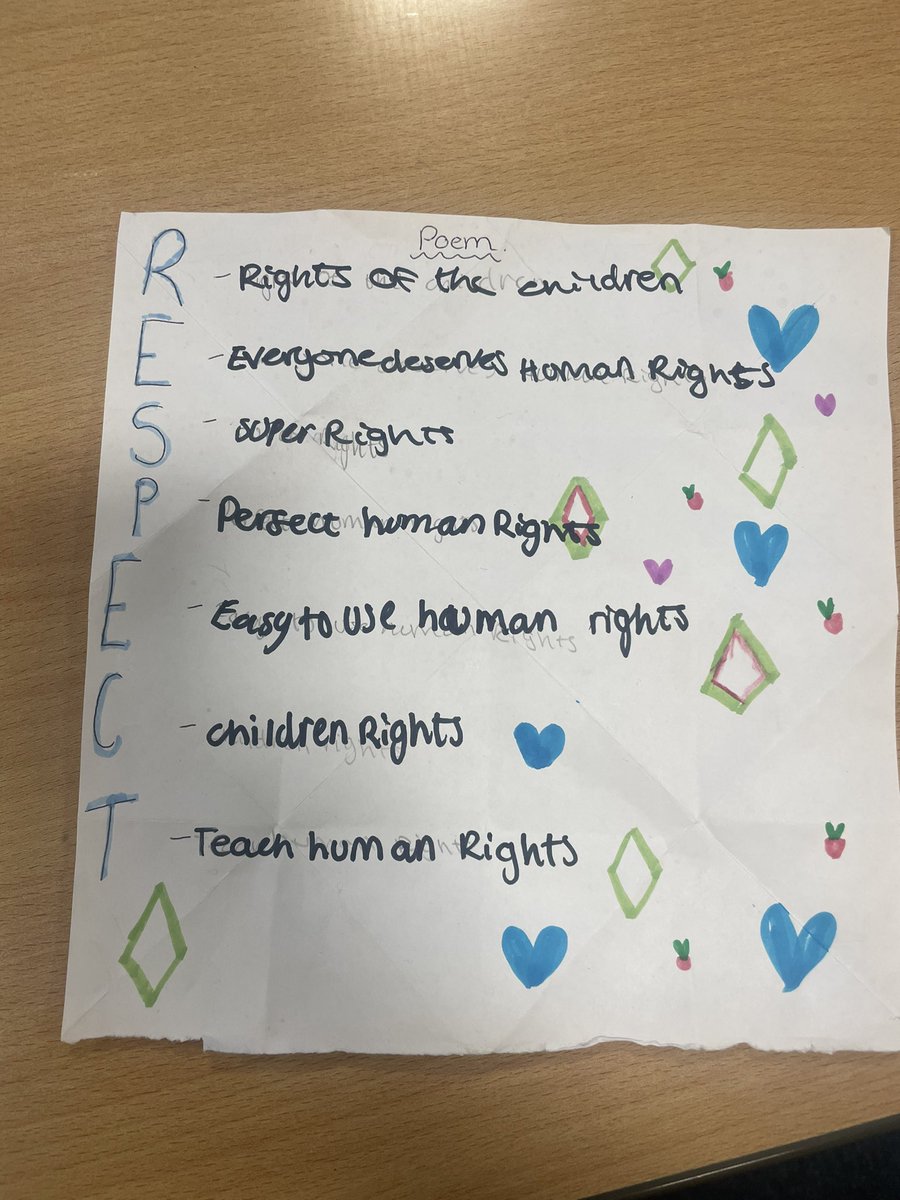 Poem
R - Rights OF the children
E - Everyone deserves Human Rights
S - super Rights
P - Perfect human Rights
E - Easy to use human rights
C - children Rights
T - Teach human Rights